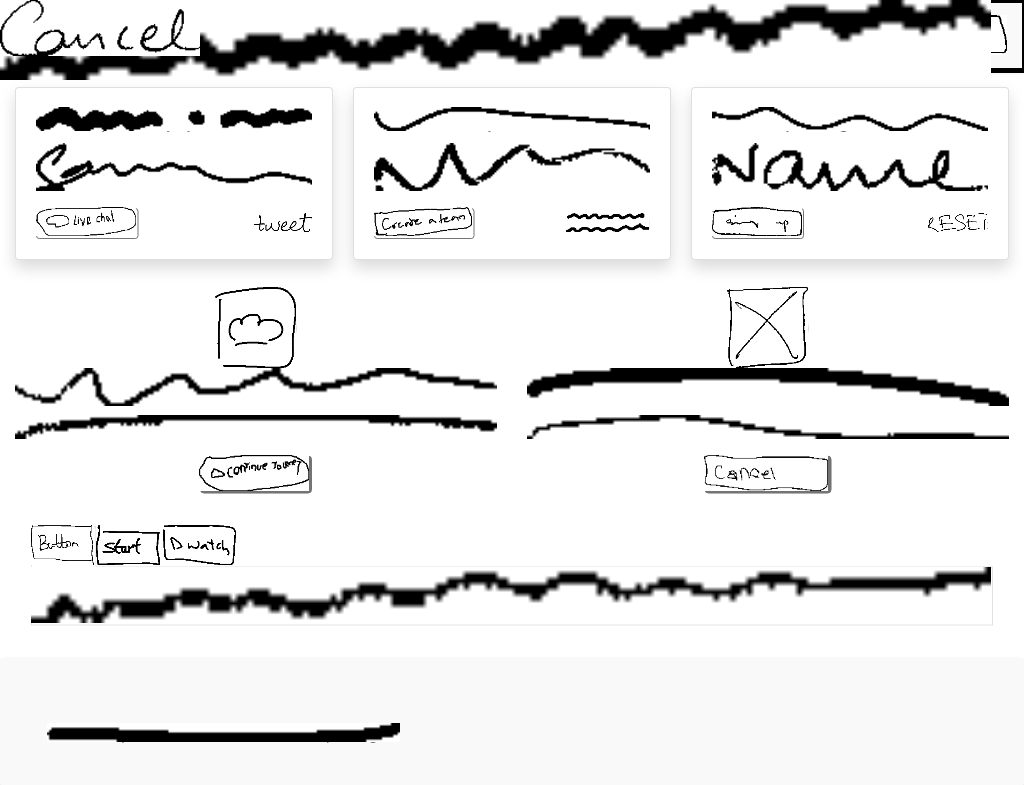 Cancel
Live chat
tweet
Create a team
Name
up
RESET
Continue Journey
Cancel
Button
Start
watch